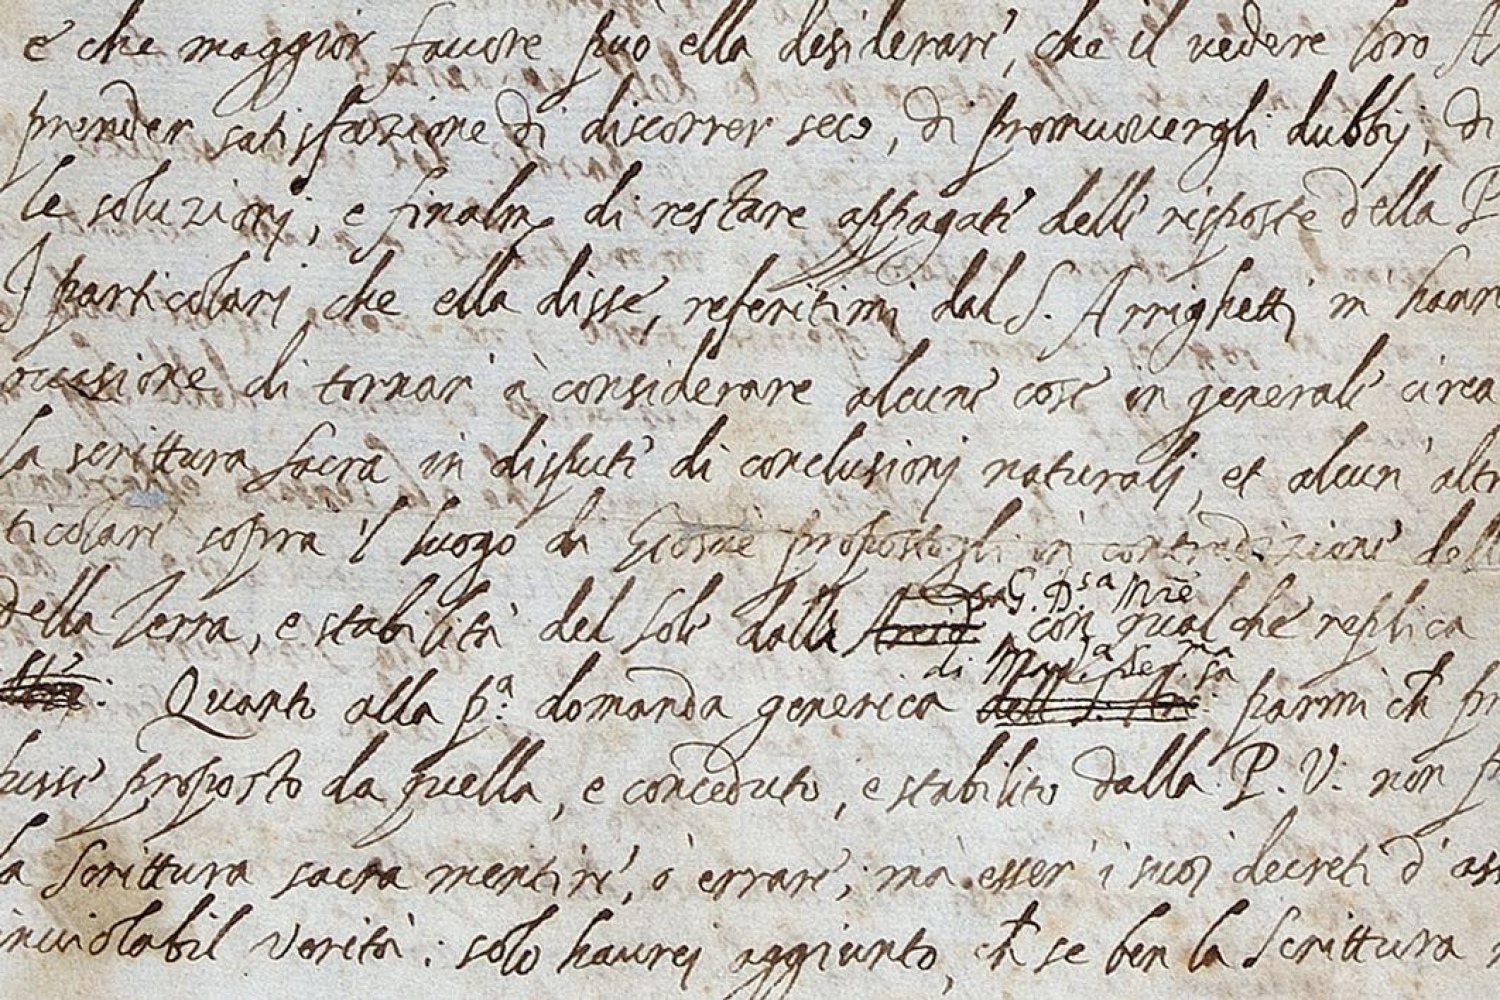 e che maggior fauore può ella desiderare, che il vedere loro
prender satisfazione di discorrer seco, di promuouergli dubbij, di
le soluzionj, e finalm.e di restare appagate delle risposte della P
I particolarj che ella disse, referitimi dal S. Arrighetti m' hann
occasione di tornar à considerare alcune cose in generale circa
la scrittura sacra in dispute di conclusionj naturalj, et alcun' altr
ticolare sopra 'l luogo di Giosuè propostogli in contradizione dell
sa G. D.sa M.re
della Terra, e stabilità del Sole dalla con qualche replica
di Mad.a Ser.ma sa
Quanto alla p.a domanda generica parmi ch pr
fusse proposto da quella, e conceduto, e stabilito dalla P. V. non p
la Scrittura sacra mentire, o errare, ma esser i suoj decreti d' ass
inuiolabil verità: solo haurej aggiunto, ch se ben la Scrittura n